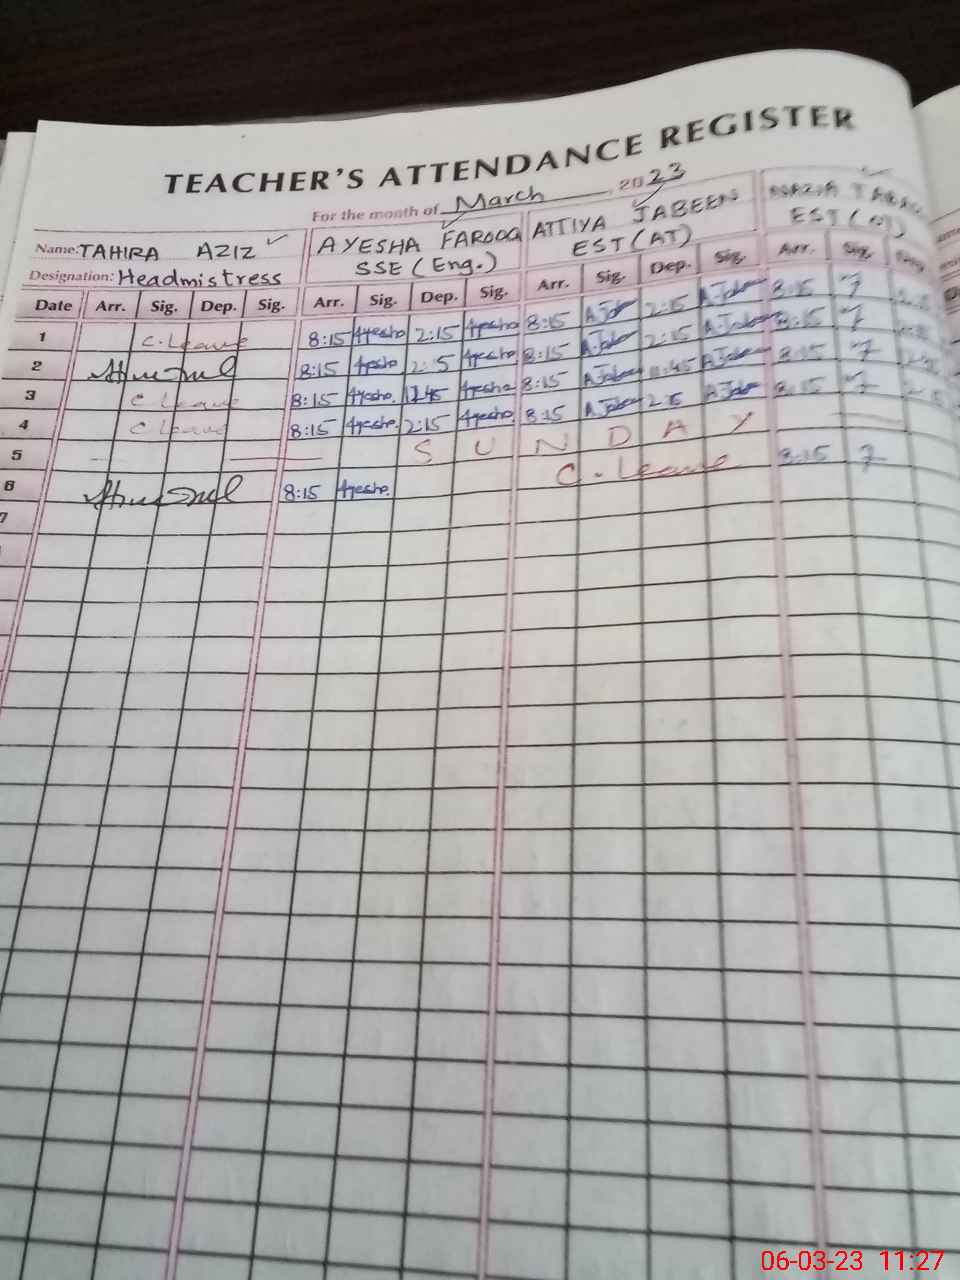 TEACHER'S ATTENDANCE REGISTER
For the month of March, 2023
Name: TAHIRA AZIZ AYESHA FAROOQ ATTIYA JABEEN NAZIA
Designation: Headmistress SSE (Eng.) EST (AT) EST
Date Arr. Sig. Dep. Sig. Arr. Sig. Dep. Sig. Arr. Sig. Dep. Sig. Arr. Sig.
1 C. Leave 8:15 Ayesha 2:15 Ayesha 8:15 A.Jabeen 2:15 A.Jabeen 8:15
2 8:15 Ayesha 2:15 Ayesha 8:15 A.Jabeen 2:15 A.Jabeen 8:15
3 C Leave 8:15 Ayesha. 12:45 Ayesha 8:15 A.Jabeen 11:45 A.Jabeen 8:15
4 C Leave 8:15 Ayesha. 2:15 Ayesha. 8:15 A.Jabeen 2:15 A.Jabeen 8:15
5 SUNDAY
6 8:15 Ayesha. C. Leave 8:15
7
06-03-23 11:27